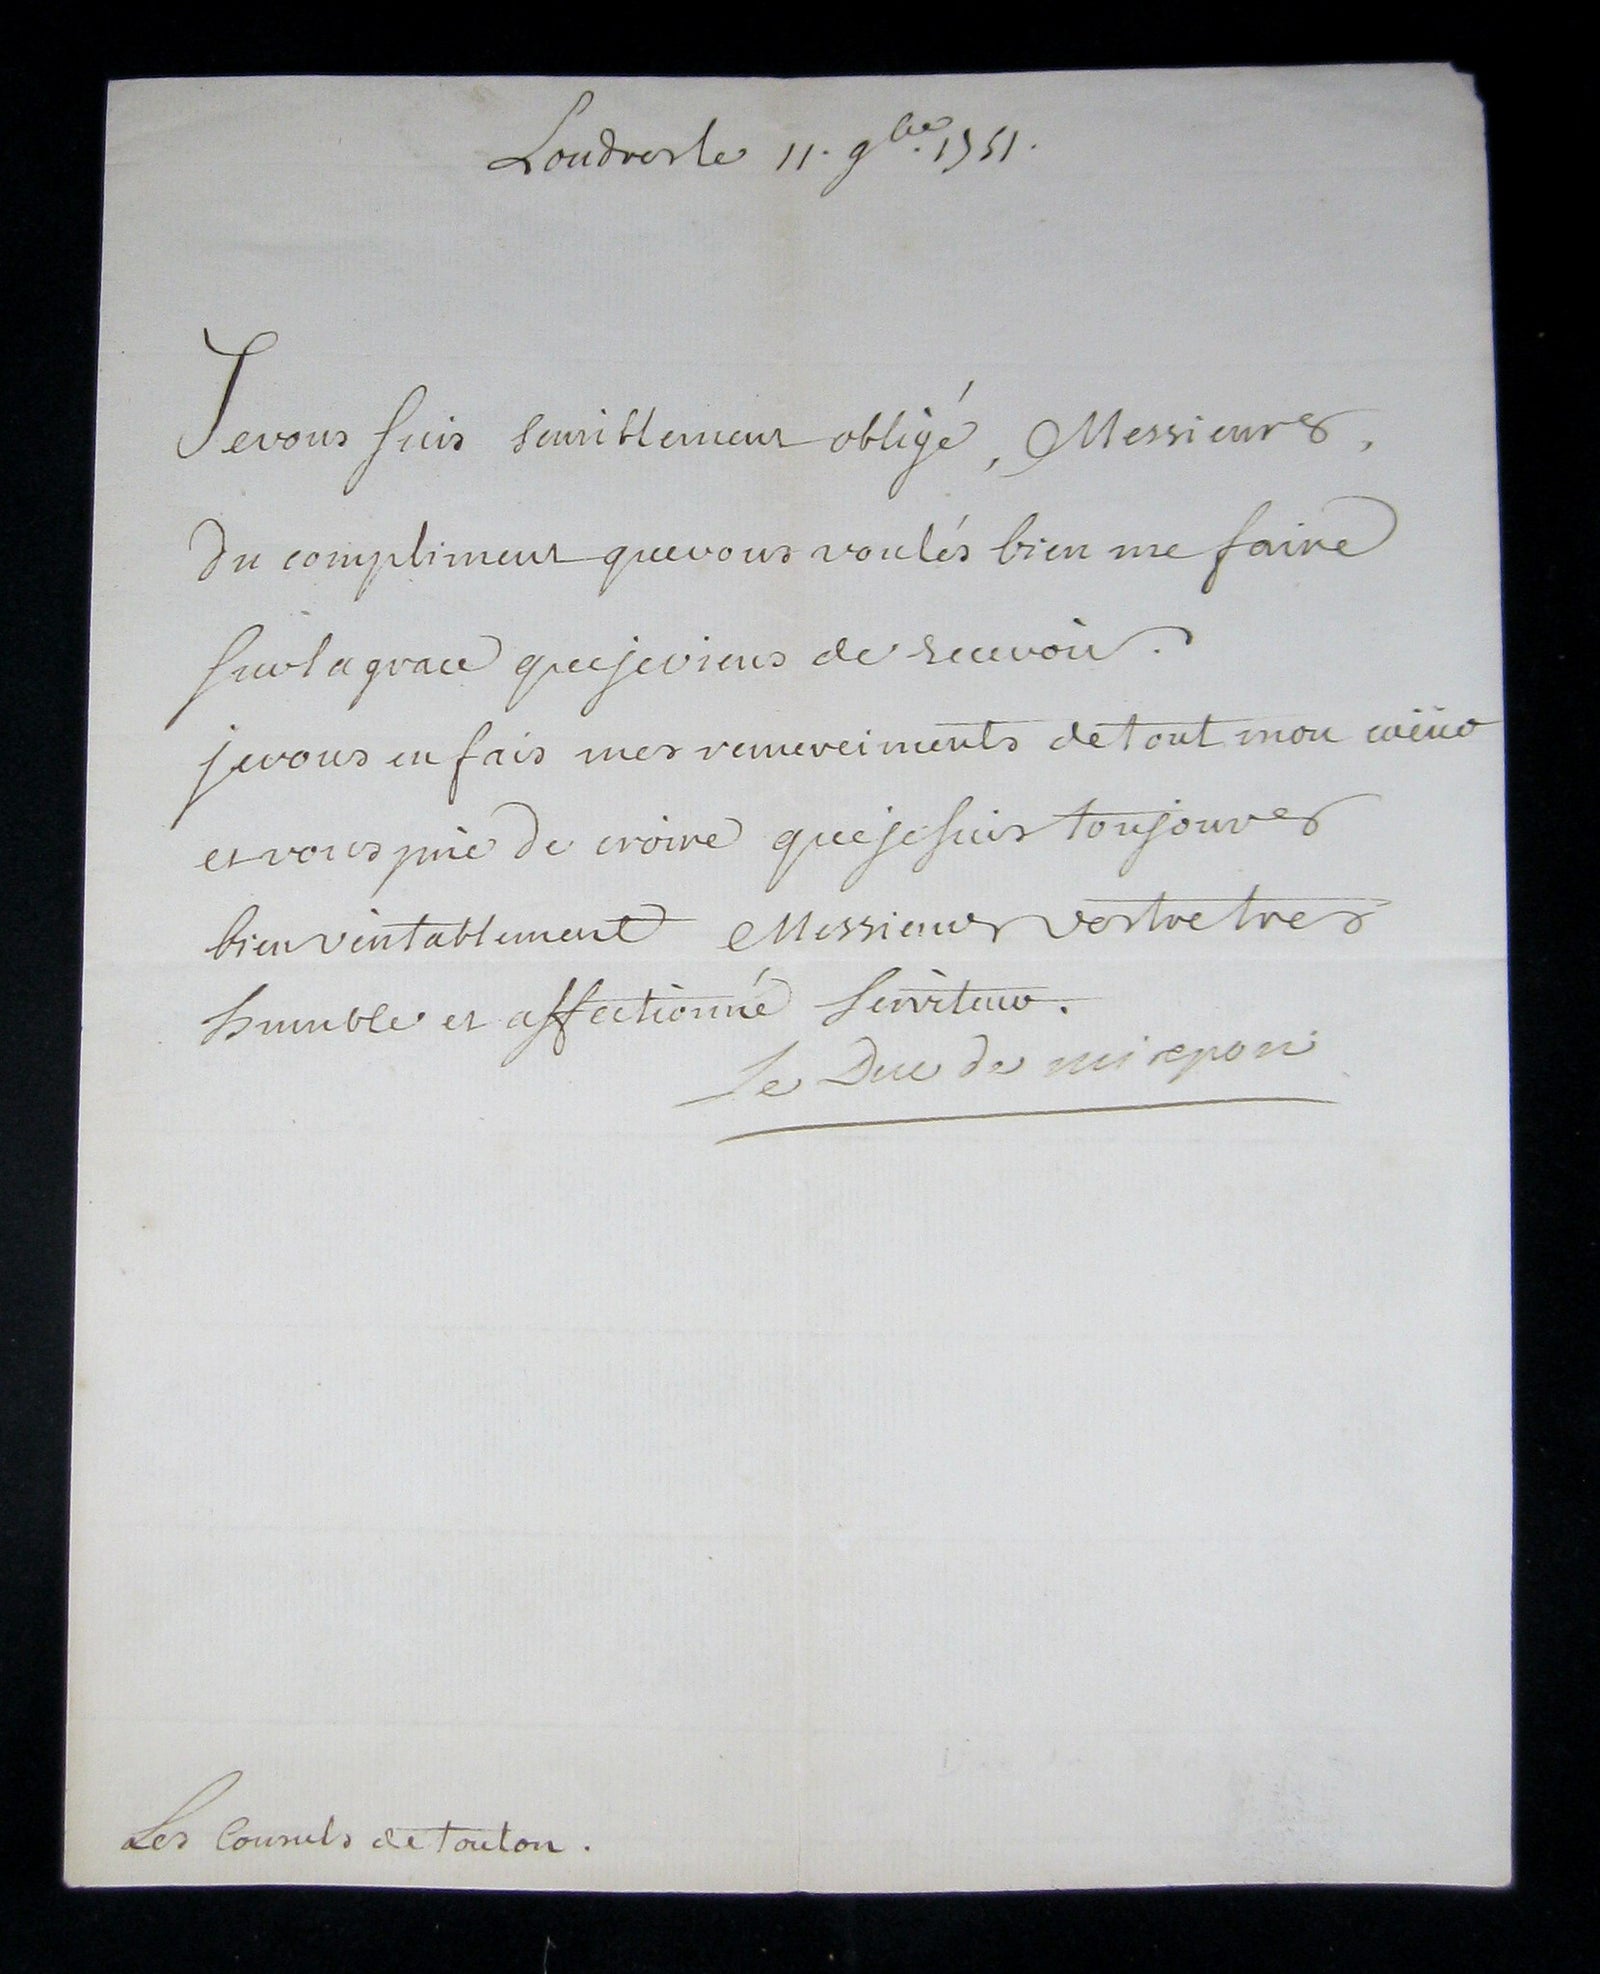 Londres le 11. 9bre. 1751.
Je vous suis sensiblement obligé, Messieurs,
du compliment que vous voulés bien me faire
sur la grace que je viens de recevoir.
je vous en fais mes remerciments de tout mon cœur
et vous prie de croire que je suis toujours
bien veritablement Messieurs vostre tres
humble et affectionné serviteur.
Le Duc de mirepoix
Les Consuls de toulon.